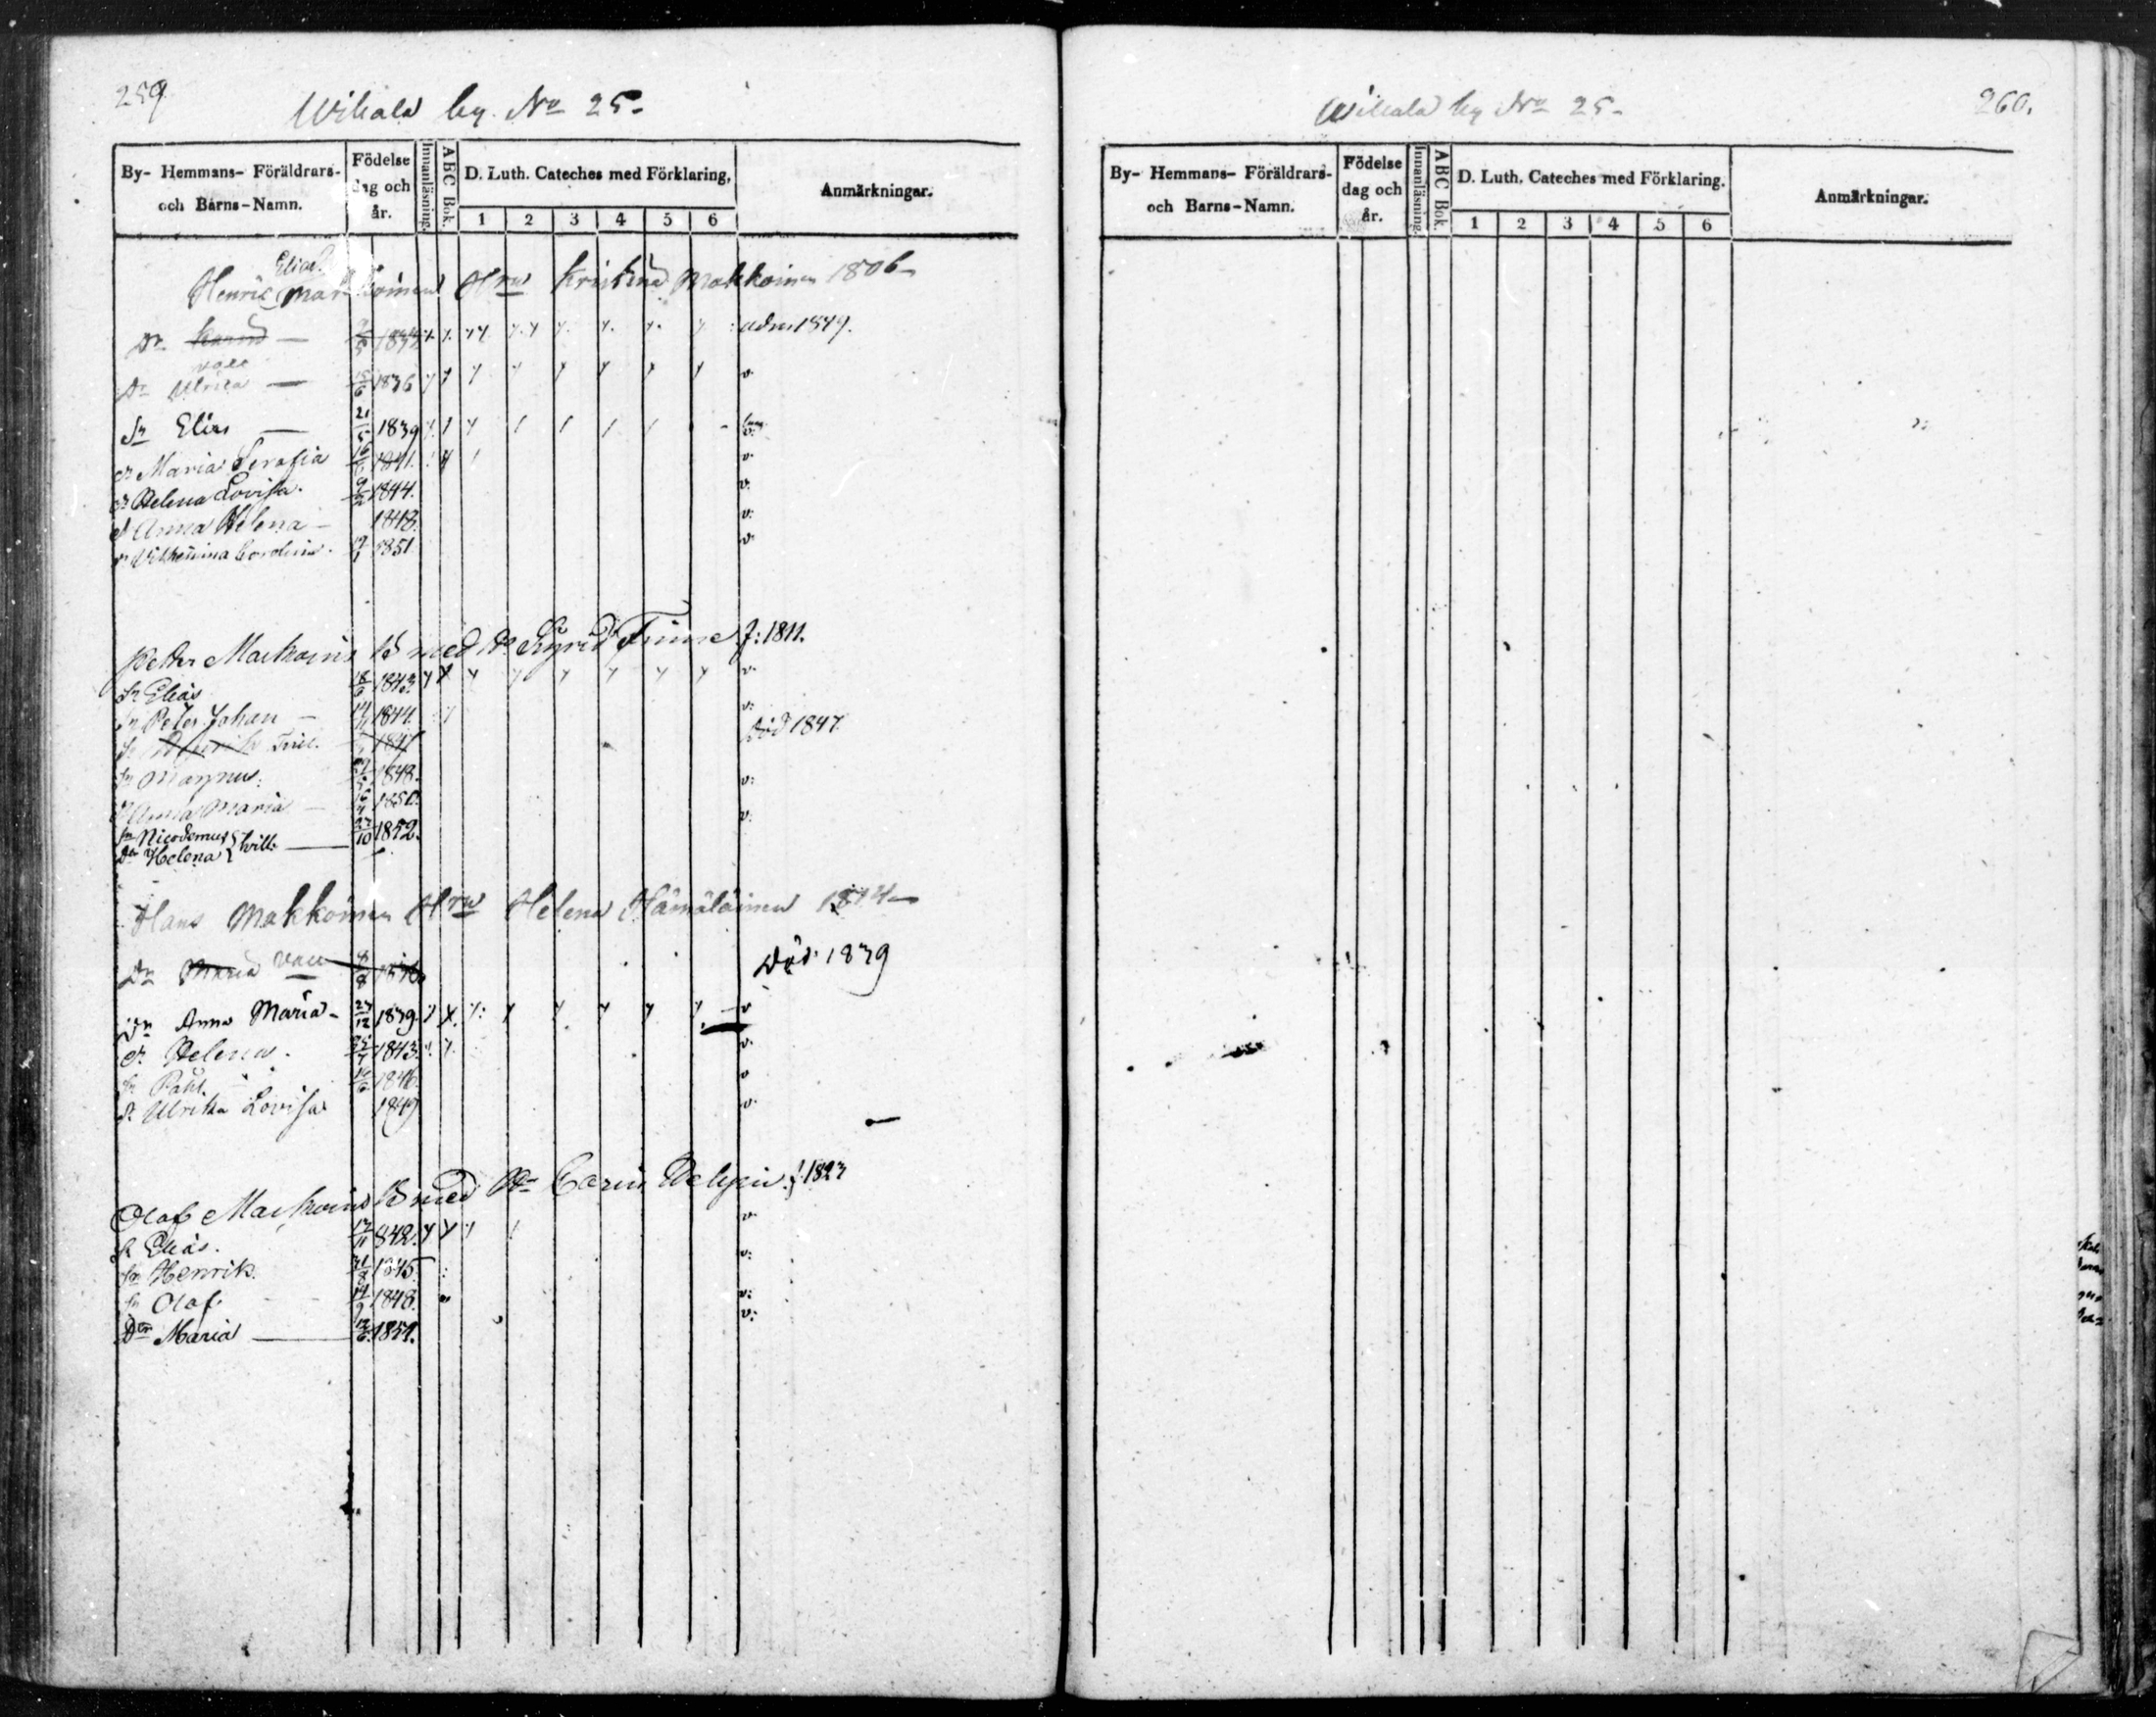 259
Wihala by. No 25.
By- Hemmans- Föräldrars-
och Barns-Namn.
Födelse
dag och
år.
Innanläsning.
ABC Bok.
D. Luth. Cateches med Förklaring.
1 2 3 4 5 6
Anmärkningar.
Henric Makkoinen Hru Kristina Makkoinen 1806
Dr 1832 adm 1849.
Dr Ulrica — 15/6 1836 v.
Sn Elias — 21/5 1839
Dr Maria Serafia 16/6 1841. v.
Dr Helena Lovisa. 9/2 1844. v.
Dr Anna Helena — 1848. v:
Dr Vilhelmina Carolina. 1851 v.
Petter Mackoin B med Hu Sigrid Tirine f: 1811.
Sn Elias 18/6 1843. v.
Sn Peter Johan — 1844. v:
1847 död 1847.
Sn Magnus. 1848. v:
Dr Anna Maria — 1850. v.
Sn Nicodemus
Dr Helena } till. — 27/10 1852.
Hans Makkoinen Hru Helena Hämäläinen 1814
Dr Maria 8/8 död 1839
Dr Anna Maria — 27/12 1839. v
Dr Helena. 1843. v.
Sn Påhl. 1846. v
Dr Ulrika Lovisa 1849 v.
Olof Mackoin B med Hu Carin f. 1823
Sn Elias. 1842. v.
Sn Henrik. 31/8 1845. v:
Sn Olof. 14/9 1848. v:
Dr Maria — 1851. v:
Wihala by No 25-
260.
By- Hemmans- Föräldrars-
och Barns-Namn.
Födelse
dag och
år.
Innanläsning.
ABC Bok.
D. Luth. Cateches med Förklaring.
1 2 3 4 5 6
Anmärkningar.